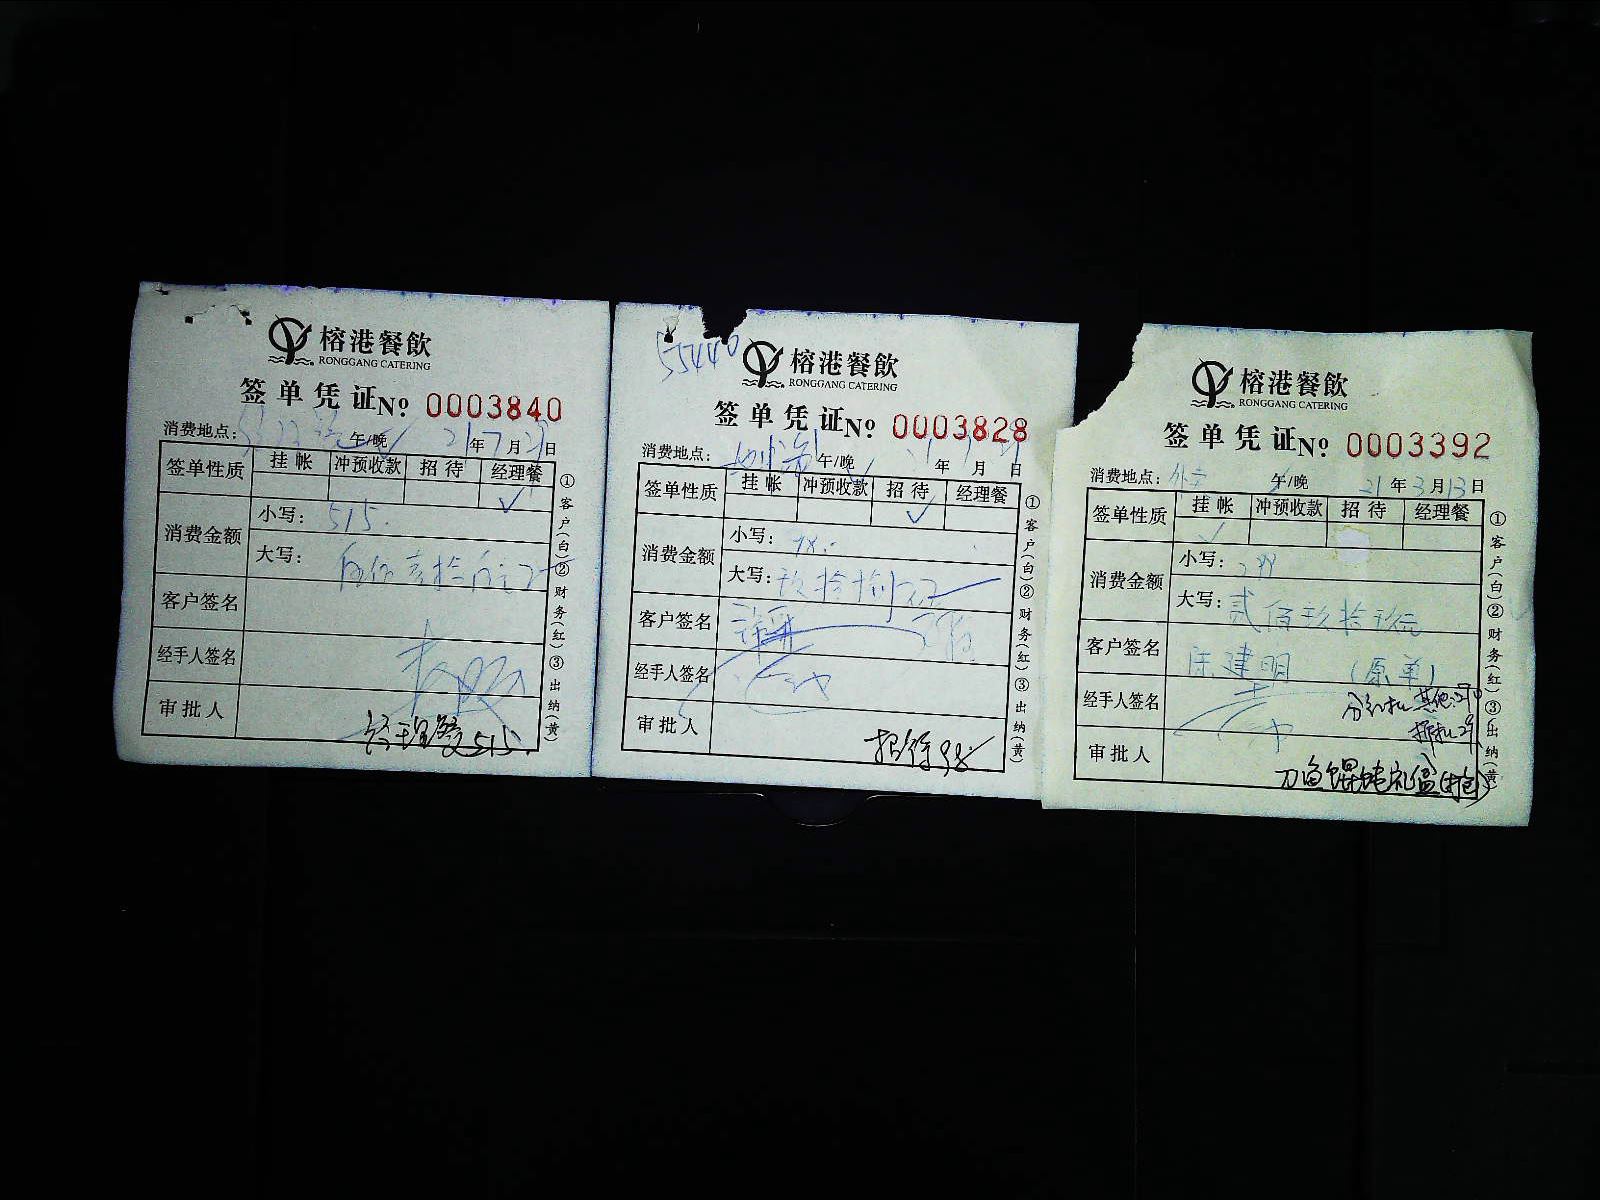 榕港餐飲
RONGGANG CATERING
签单凭证№ 0003840
消费地点: 午/晚 21年7月 日
签单性质 挂帐 冲预收款 招待 经理餐
✓
消费金额 小写: 515.
大写: 伍佰壹拾伍元
客户签名
经手人签名
审批人 经理餐515.
①客户(白)②财务(红)③出纳(黄)
55440
榕港餐飲
RONGGANG CATERING
签单凭证№ 0003828
消费地点: 午/晚 年 月 日
签单性质 挂帐 冲预收款 招待 经理餐
✓
消费金额 小写: 98.-
大写: 玖拾捌元
客户签名
经手人签名
审批人 招待98
①客户(白)②财务(红)③出纳(黄)
榕港餐飲
RONGGANG CATERING
签单凭证№ 0003392
消费地点: 外卖 午/晚 21年3月13日
签单性质 挂帐 冲预收款 招待 经理餐
✓
消费金额 小写: 299
大写: 贰佰玖拾玖元
客户签名 陈建明 (原单)
经手人签名
审批人 刀鱼馄饨礼盒
①客户(白)②财务(红)③出纳(黄)